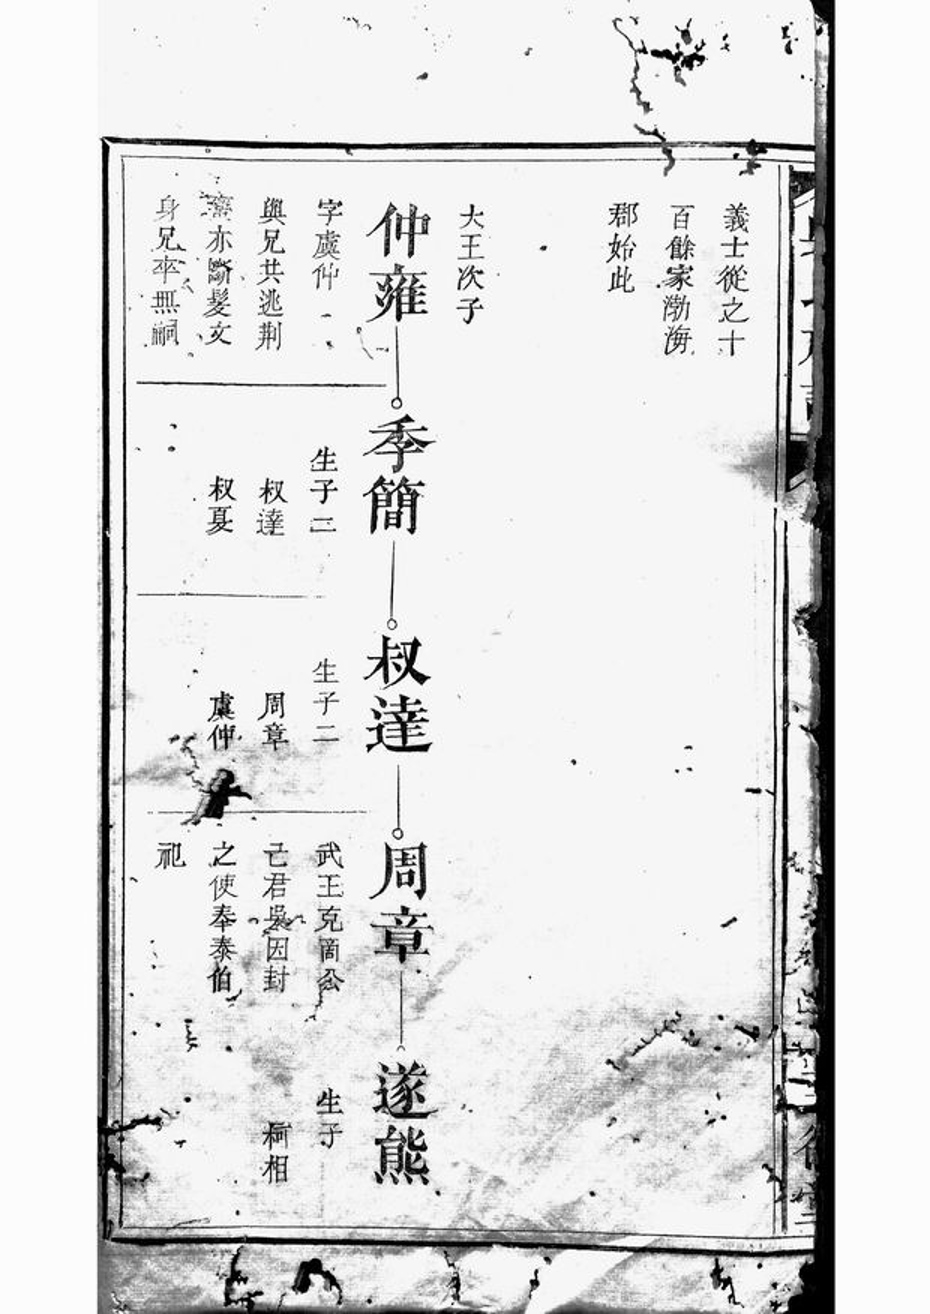 義士從之十
百餘家渤海
郡始此
大王次子
仲雍
字虞仲
與兄共逃荆
蠻亦斷髮文
身兄卒無嗣
季簡
生子二
叔達
叔夏
叔達
生子二
周章
虞仲
周章
武王克商公
已君吳因封
之使奉泰伯
祀
遂熊
生子
柯相